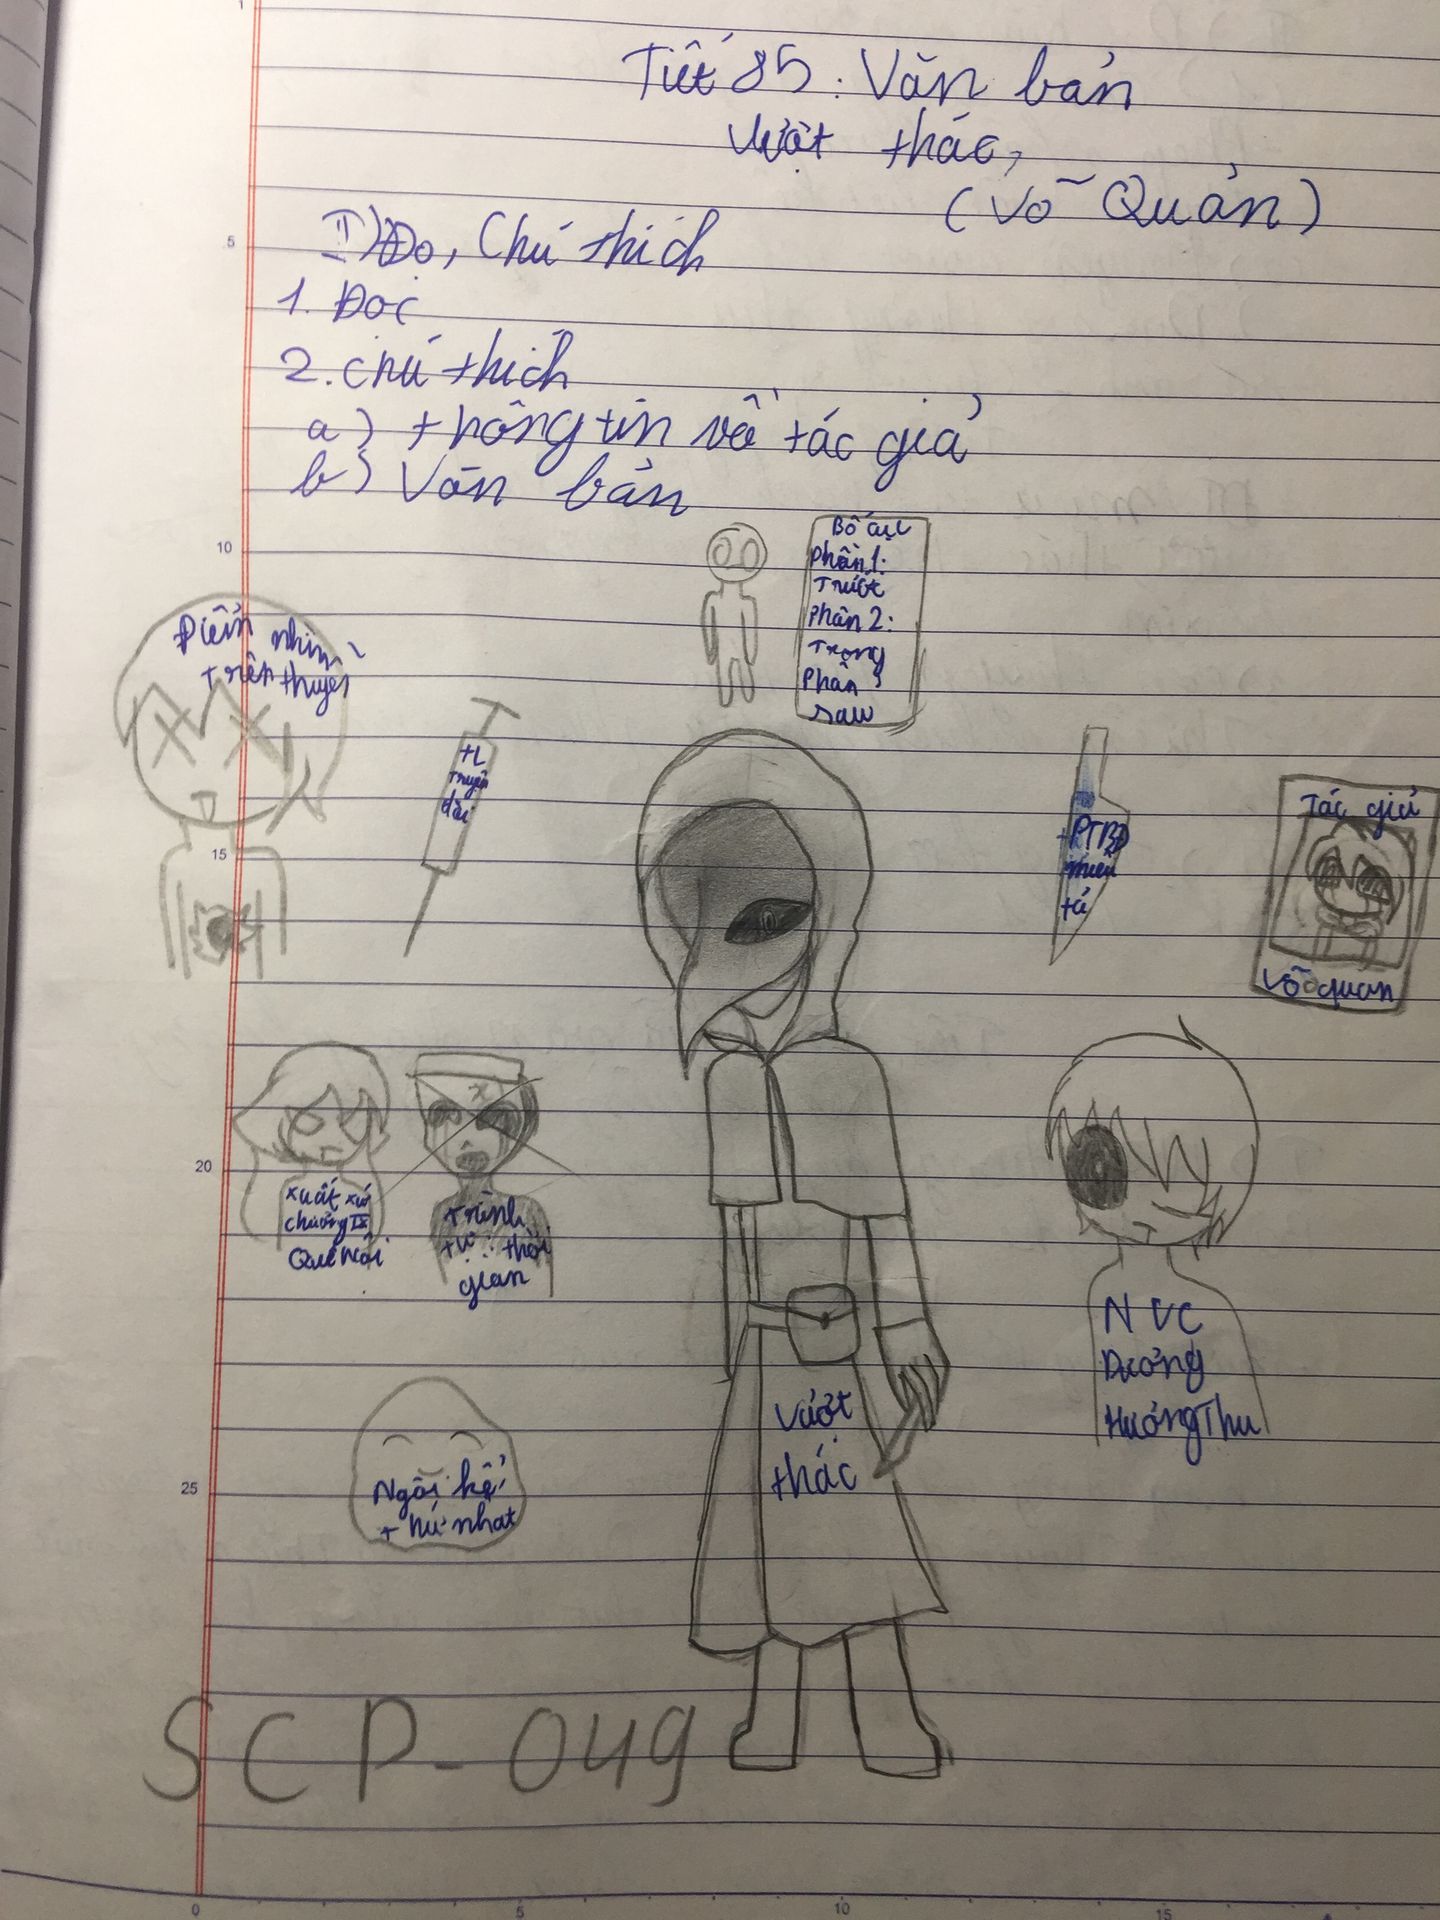 Tiết 85: Văn bản
Vượt thác,
(Võ Quản)
I) Đọ, Chú thích
1. Đọc
2. chú thích
a) thông tin về tác giả
b) Văn bản
Bố cục
Phần 1:
Trước
Phần 2:
Trong
Phần 3
saw
Điểm nhìn
trên thuyền
+L
truyện
dài
+PTBĐ
miêu
tả
Tác giả
Võ quản
xuất xứ
chương IX
Quê Nội
trình
tự : thời
gian
NVC
Dương
Hương Thư
Vượt
thác
Ngôi kể
thứ nhất
SCP-049
1
5
10
15
20
25
0
5
10
15